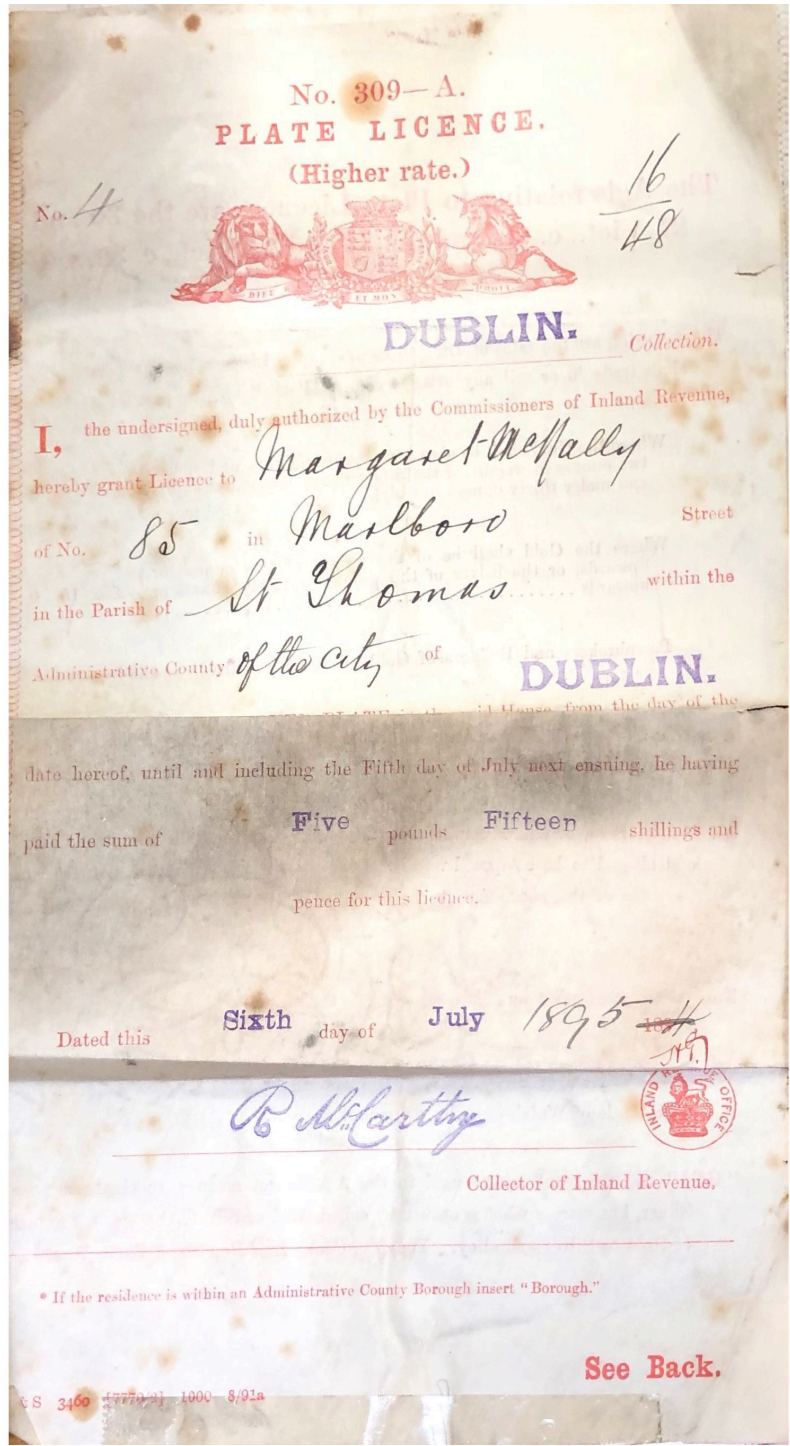 No. 309—A.
PLATE LICENCE.
(Higher rate.)
No. 4
16
48
DIEU ET MON DROIT
DUBLIN. Collection.
I, the undersigned, duly authorized by the Commissioners of Inland Revenue,
hereby grant Licence to Margaret McNally
of No. 85 in Marlboro Street
in the Parish of St Thomas within the
Administrative County* of the city of DUBLIN.
House, from the day of the
date hereof, until and including the Fifth day of July next ensuing, he having
paid the sum of Five pounds Fifteen shillings and
pence for this licence.
Dated this Sixth day of July 1895
INLAND REVENUE OFFICE
R McCarthy
Collector of Inland Revenue,
* If the residence is within an Administrative County Borough insert "Borough."
See Back.
& S 3460 [7770/2] 1000 8/91a